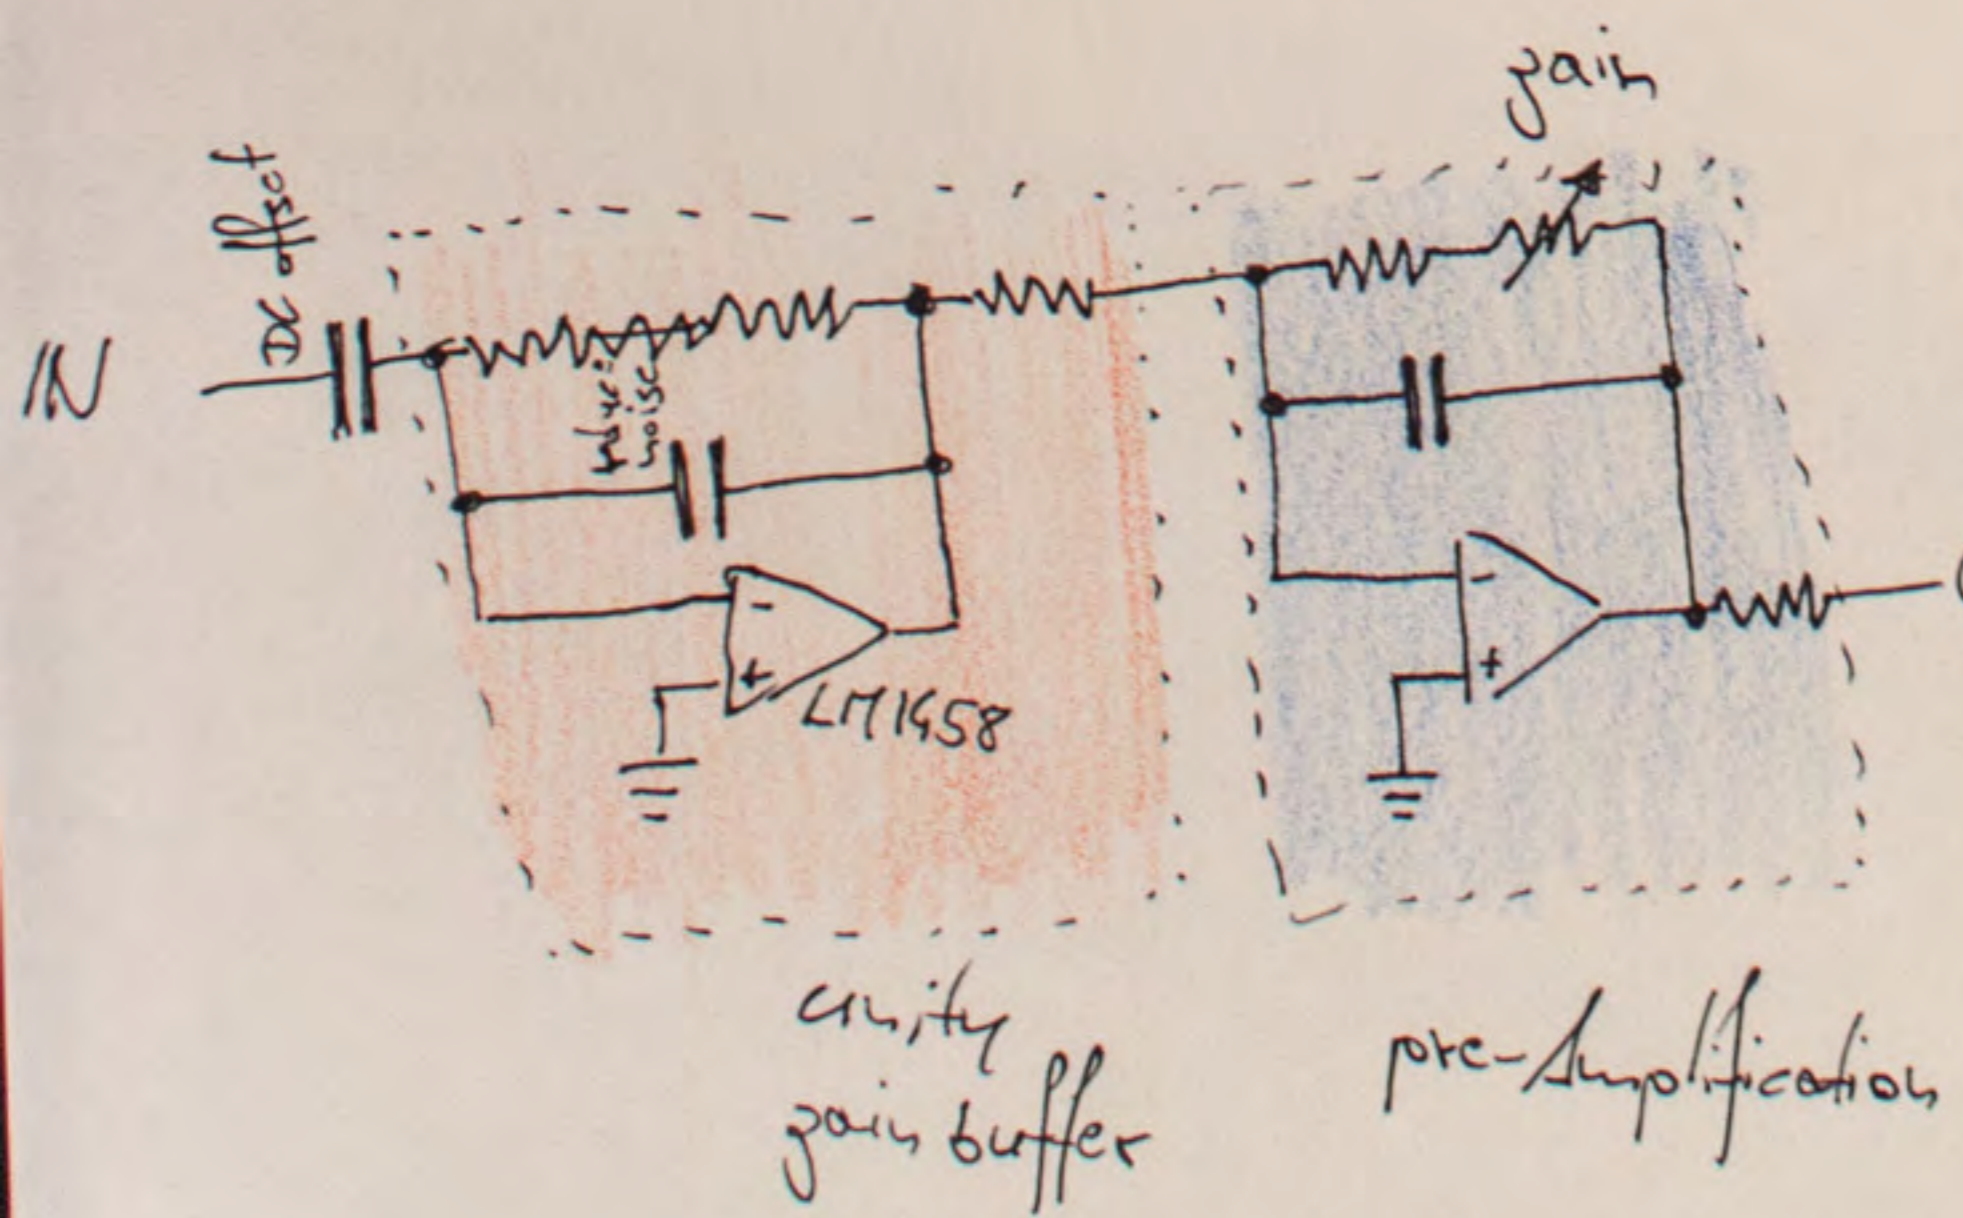 gain
DC offset
IN
reduce
noise
-
+
LM1458
-
+
unity
gain buffer
pre-Amplification